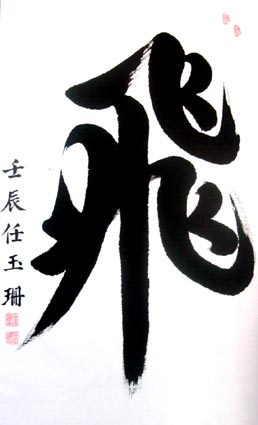 飛
壬辰任玉珊